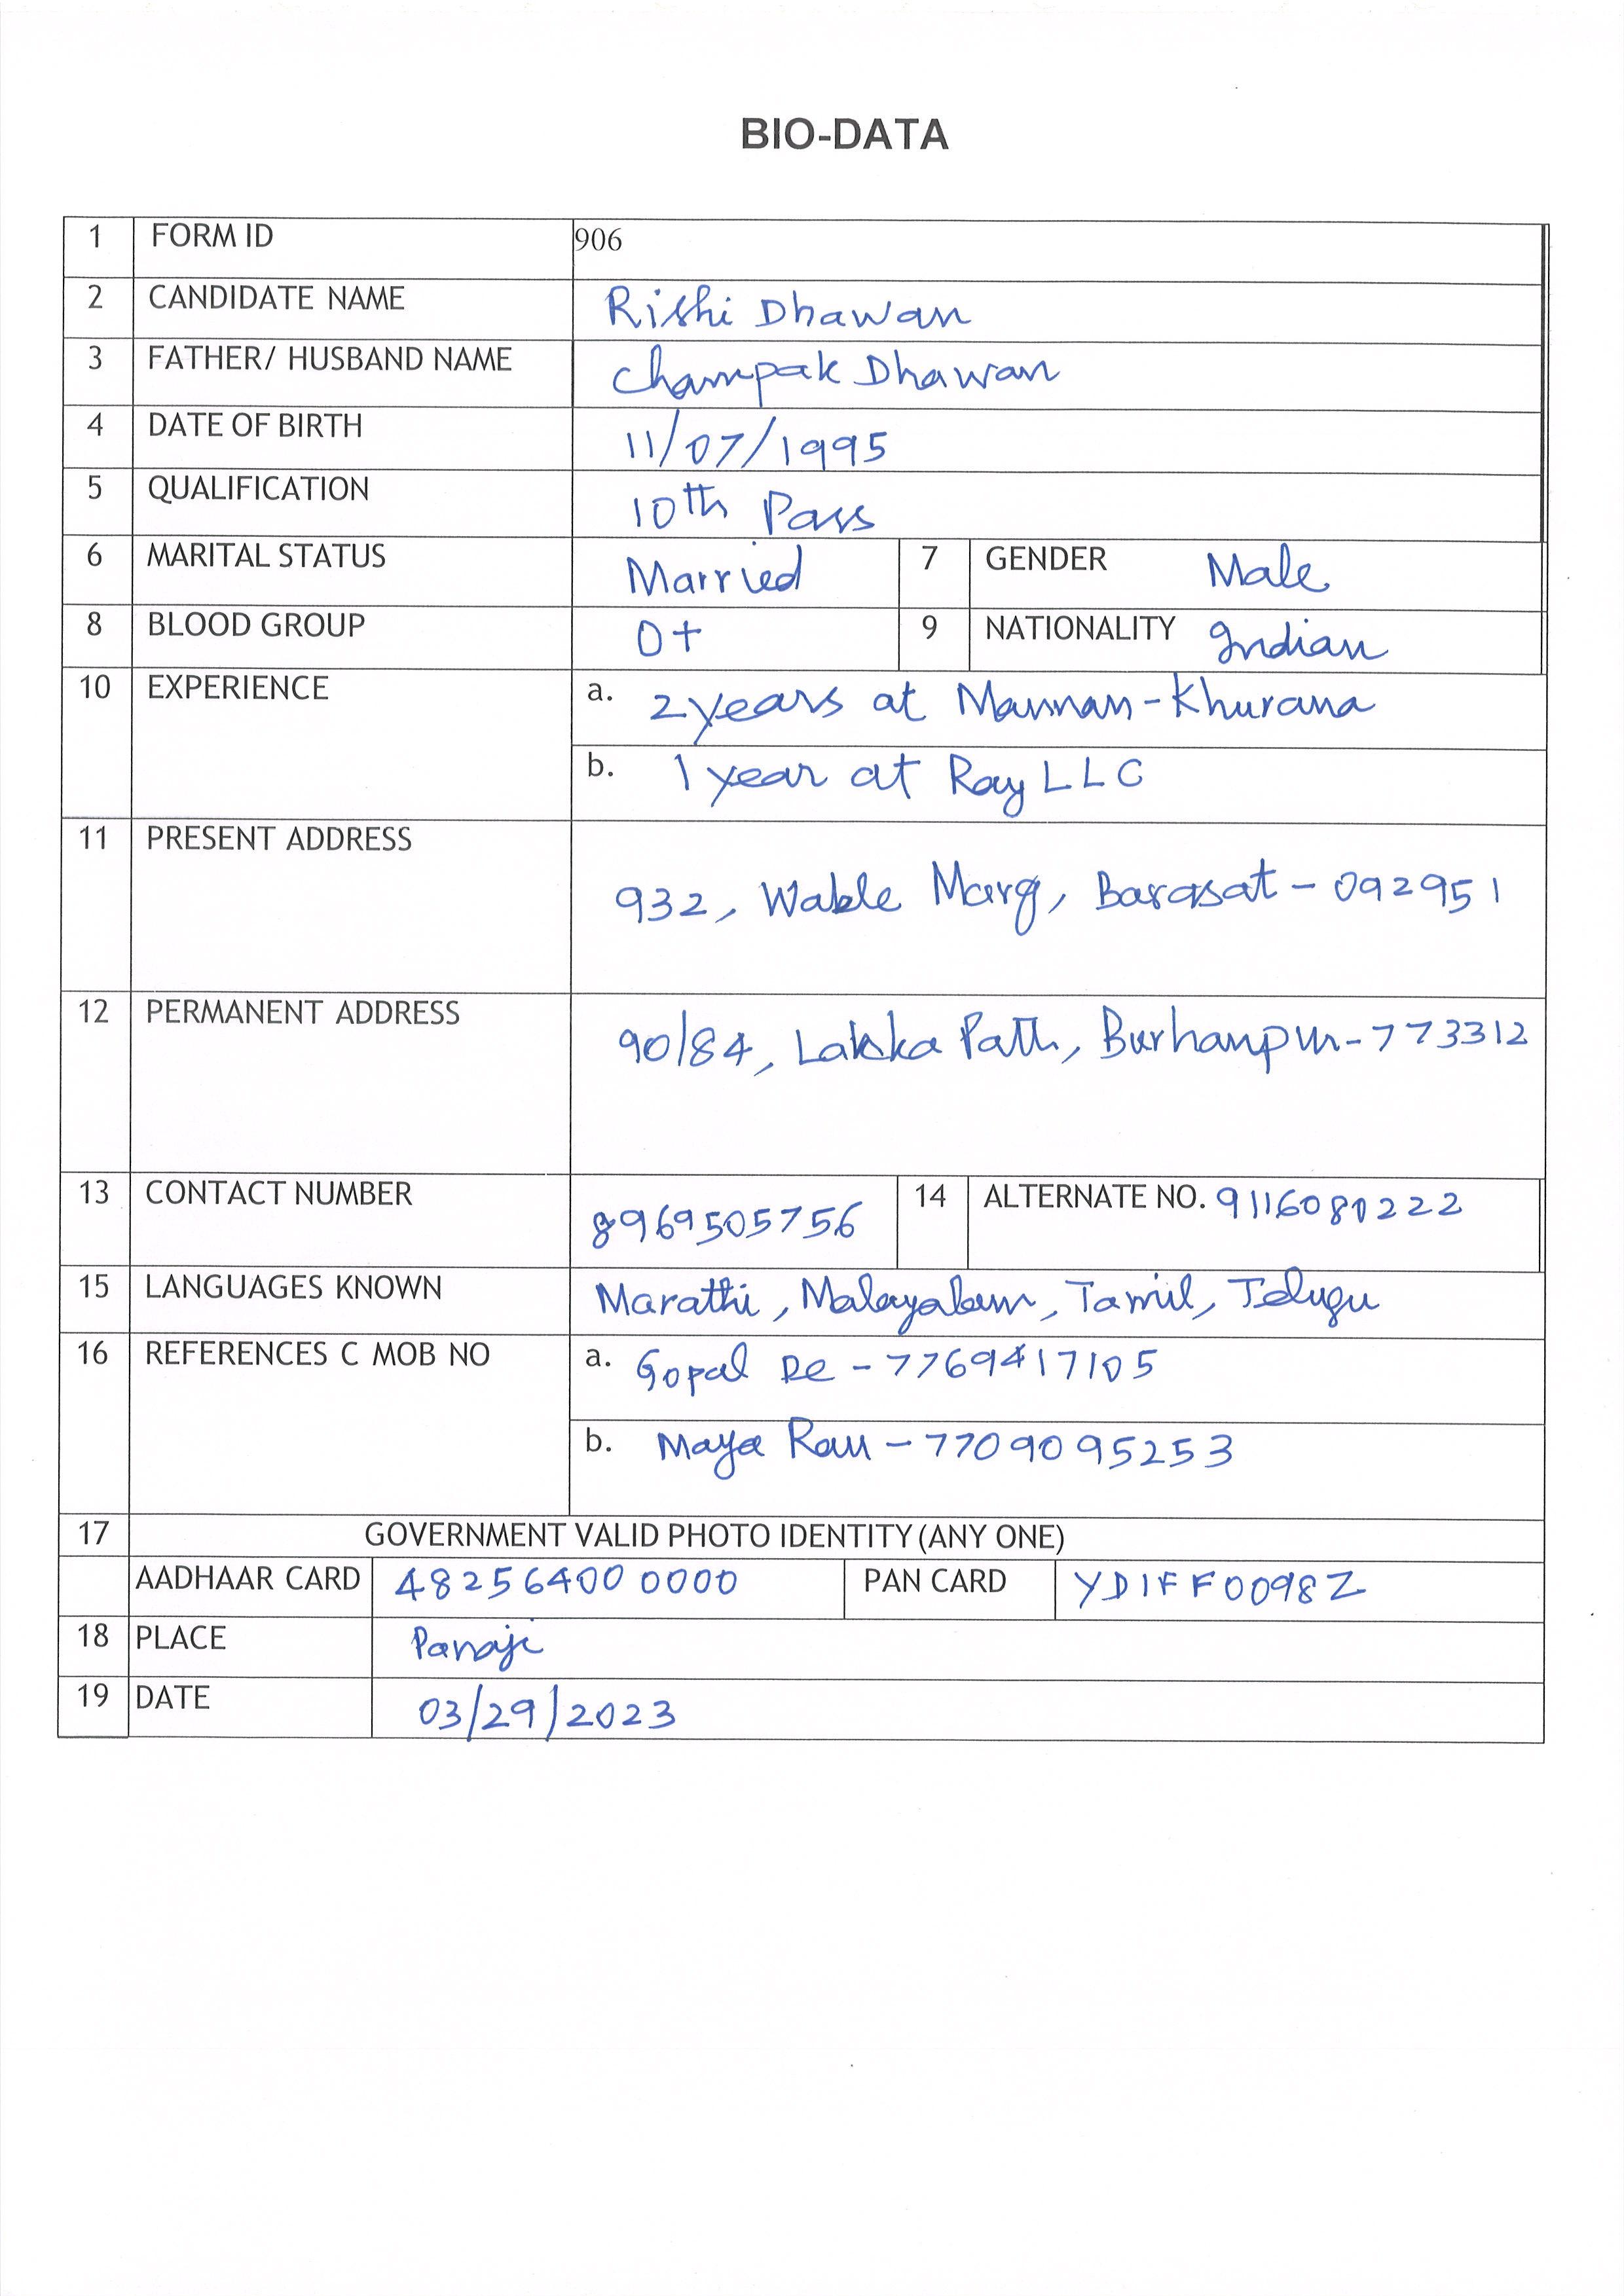 BIO-DATA
1 FORM ID 906
2 CANDIDATE NAME Rishi Dhawan
3 FATHER/ HUSBAND NAME Champak Dhawan
4 DATE OF BIRTH 11/07/1995
5 QUALIFICATION 10th Pass
6 MARITAL STATUS Married 7 GENDER Male
8 BLOOD GROUP O+ 9 NATIONALITY Indian
10 EXPERIENCE a. 2 years at Mannan-Khurana
b. 1 year at Ray LLC
11 PRESENT ADDRESS
932, Wable Marg, Barasat - 092951
12 PERMANENT ADDRESS
90/84, Lakka Path, Burhanpur - 773312
13 CONTACT NUMBER 8969505756 14 ALTERNATE NO. 9116080222
15 LANGUAGES KNOWN Marathi, Malayalam, Tamil, Telugu
16 REFERENCES C MOB NO a. Gopal De - 7769417105
b. Maya Rau - 7709095253
17 GOVERNMENT VALID PHOTO IDENTITY (ANY ONE)
AADHAAR CARD 482564000000 PAN CARD YDIFF0098Z
18 PLACE Panaji
19 DATE 03/29/2023